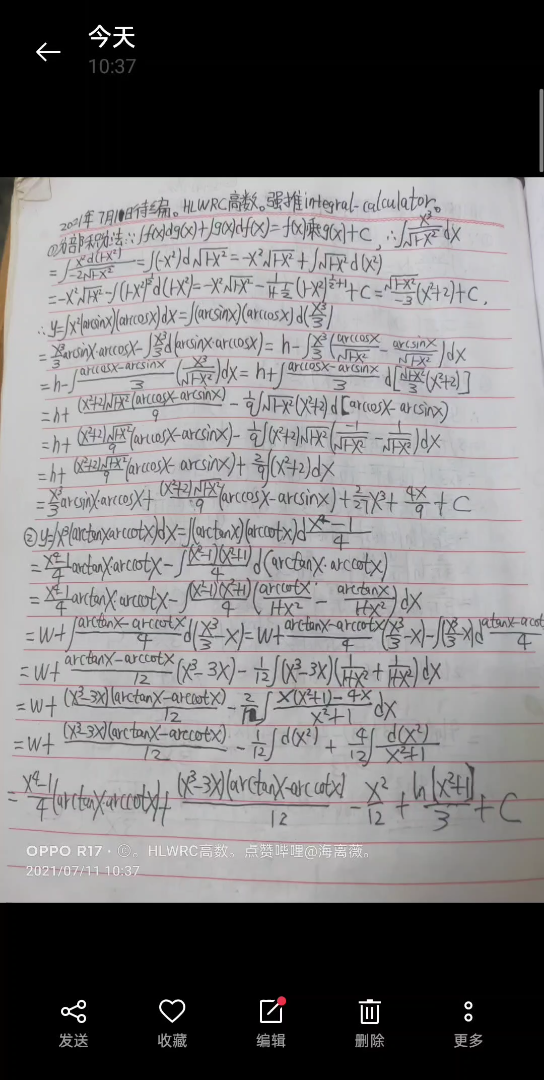 今天
10:37
2021年7月11日待续。HLWRC高数。强推integral-calculator。
①分部积分法:∵∫f(x)dg(x)+∫g(x)df(x)=f(x)乘g(x)+C,∴∫x³/√(1-x²) dx
=∫x²d(1-x²)/(-2√(1-x²))=∫(-x²)d√(1-x²)=-x²√(1-x²)+∫√(1-x²)d(x²)
=-x²√(1-x²)-∫(1-x²)^½d(1-x²)=-x²√(1-x²)-1/(1+½)(1-x²)^(½+1)+C=√(1-x²)/(-3)(x²+2)+C,
∴y=∫x²(arcsinx)(arccosx)dx=∫(arcsinx)(arccosx)d(x³/3)
=x³/3 arcsinx·arccosx-∫x³/3 d(arcsinx·arccosx)=h-∫x³/3(arccosx/√(1-x²)-arcsinx/√(1-x²))dx
=h-∫(arccosx-arcsinx)/3(x³/√(1-x²))dx=h+∫(arccosx-arcsinx)/3 d[√(1-x²)/3(x²+2)]
=h+(x²+2)√(1-x²)(arccosx-arcsinx)/9-1/9∫√(1-x²)(x²+2)d[arccosx-arcsinx)
=h+(x²+2)√(1-x²)/9(arccosx-arcsinx)-1/9∫(x²+2)√(1-x²)(-1/√(1-x²)-1/√(1-x²))dx
=h+(x²+2)√(1-x²)/9(arccosx-arcsinx)+2/9∫(x²+2)dx
=x³/3 arcsinx·arccosx+(x²+2)√(1-x²)/9(arccosx-arcsinx)+2/27x³+4x/9+C
②y=∫x³(arctanxarccotx)dx=∫(arctanx)(arccotx)d(x⁴-1)/4
=(x⁴-1)/4 arctanx·arccotx-∫(x²-1)(x²+1)/4 d(arctanx·arccotx)
=(x⁴-1)/4 arctanx·arccotx-∫(x²-1)(x²+1)/4(arccotx/(1+x²)-arctanx/(1+x²))dx
=w+∫(arctanx-arccotx)/4 d(x³/3-x)=w+(arctanx-arccotx)/4(x³/3-x)-∫(x³/3-x)d(atanx-acot)/4
=w+(arctanx-arccotx)/12(x³-3x)-1/12∫(x³-3x)(1/(1+x²)+1/(1+x²))dx
=w+(x³-3x)(arctanx-arccotx)/12-2/12∫(x(x²+1)-4x)/(x²+1)dx
=w+(x³-3x)(arctanx-arccotx)/12-1/12∫d(x²)+4/12∫d(x²)/(x²+1)
=(x⁴-1)/4(arctanx·arccotx)+(x³-3x)(arctanx-arccotx)/12-x²/12+ln[x²+1]/3+C
OPPO R17·©。HLWRC高数、点赞哔哩@海离薇。
2021/07/11 10:37
发送 收藏 编辑 删除 更多